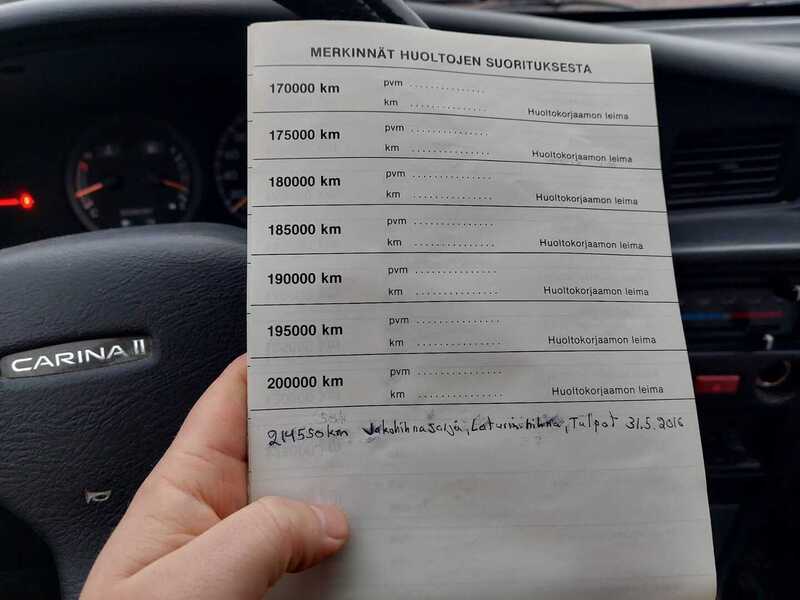 MERKINNÄT HUOLTOJEN SUORITUKSESTA
170000 km pvm ...............
km ............... Huoltokorjaamon leima
175000 km pvm ...............
km ............... Huoltokorjaamon leima
180000 km pvm ...............
km ............... Huoltokorjaamon leima
185000 km pvm ...............
km ............... Huoltokorjaamon leima
190000 km pvm ...............
km ............... Huoltokorjaamon leima
195000 km pvm ...............
km ............... Huoltokorjaamon leima
200000 km pvm ...............
km ............... Huoltokorjaamon leima
214550km Jakohihnasarja, Laturinhihna, Tulpat 31.5.2016
CARINA II